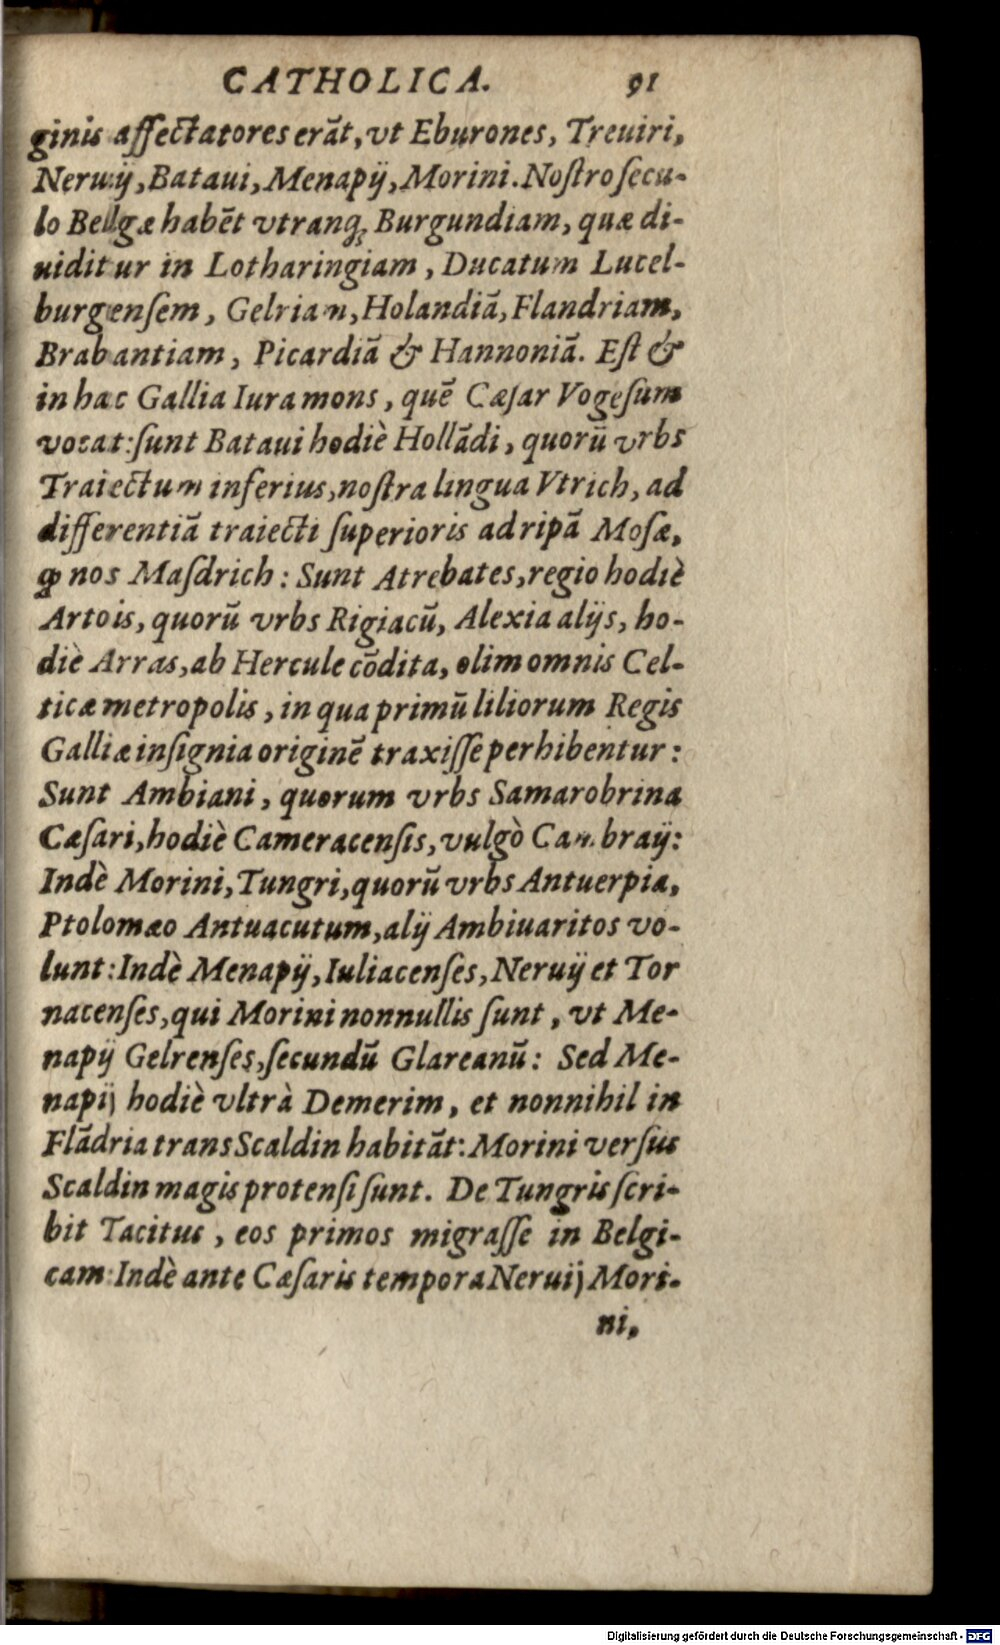 CATHOLICA. 91
ginis affectatores erãt, vt Eburones, Treuiri,
Neruij, Bataui, Menapij, Morini. Noſtro ſecu-
lo Belgæ habẽt vtranq; Burgundiam, quæ di-
uiditur in Lotharingiam, Ducatum Lucel-
burgenſem, Gelriam, Holandiã, Flandriam,
Brabantiam, Picardiã & Hannoniã. Eſt &
in hac Gallia Iura mons, quẽ Cæſar Vogeſum
vocat: ſunt Bataui hodiè Hollãdi, quorũ vrbs
Traiectum inferius, noſtra lingua Vtrich, ad
differentiã traiecti ſuperioris ad ripã Moſæ,
ꝙ nos Maſdrich: Sunt Atrebates, regio hodiè
Artois, quorũ vrbs Rigiacũ, Alexia alijs, ho-
diè Arras, ab Hercule cõdita, olim omnis Cel-
ticæ metropolis, in qua primũ liliorum Regis
Galliæ inſignia originẽ traxiſſe perhibentur:
Sunt Ambiani, quorum vrbs Samarobrina
Cæſari, hodiè Cameracenſis, vulgò Cambraij:
Indè Morini, Tungri, quorũ vrbs Antuerpia,
Ptolomæo Antuacutum, alij Ambiuaritos vo-
lunt: Indè Menapij, Iuliacenſes, Neruij et Tor
nacenſes, qui Morini nonnullis ſunt, vt Me-
napij Gelrenſes, ſecundũ Glareanũ: Sed Me-
napij hodiè vltrà Demerim, et nonnihil in
Flãdria trans Scaldin habitãt: Morini verſus
Scaldin magis protenſi ſunt. De Tungris ſcri-
bit Tacitus, eos primos migraſſe in Belgi-
cam: Indè ante Cæſaris tempora Neruij Mori-
ni,
Digitalisierung gefördert durch die Deutsche Forschungsgemeinschaft - DFG